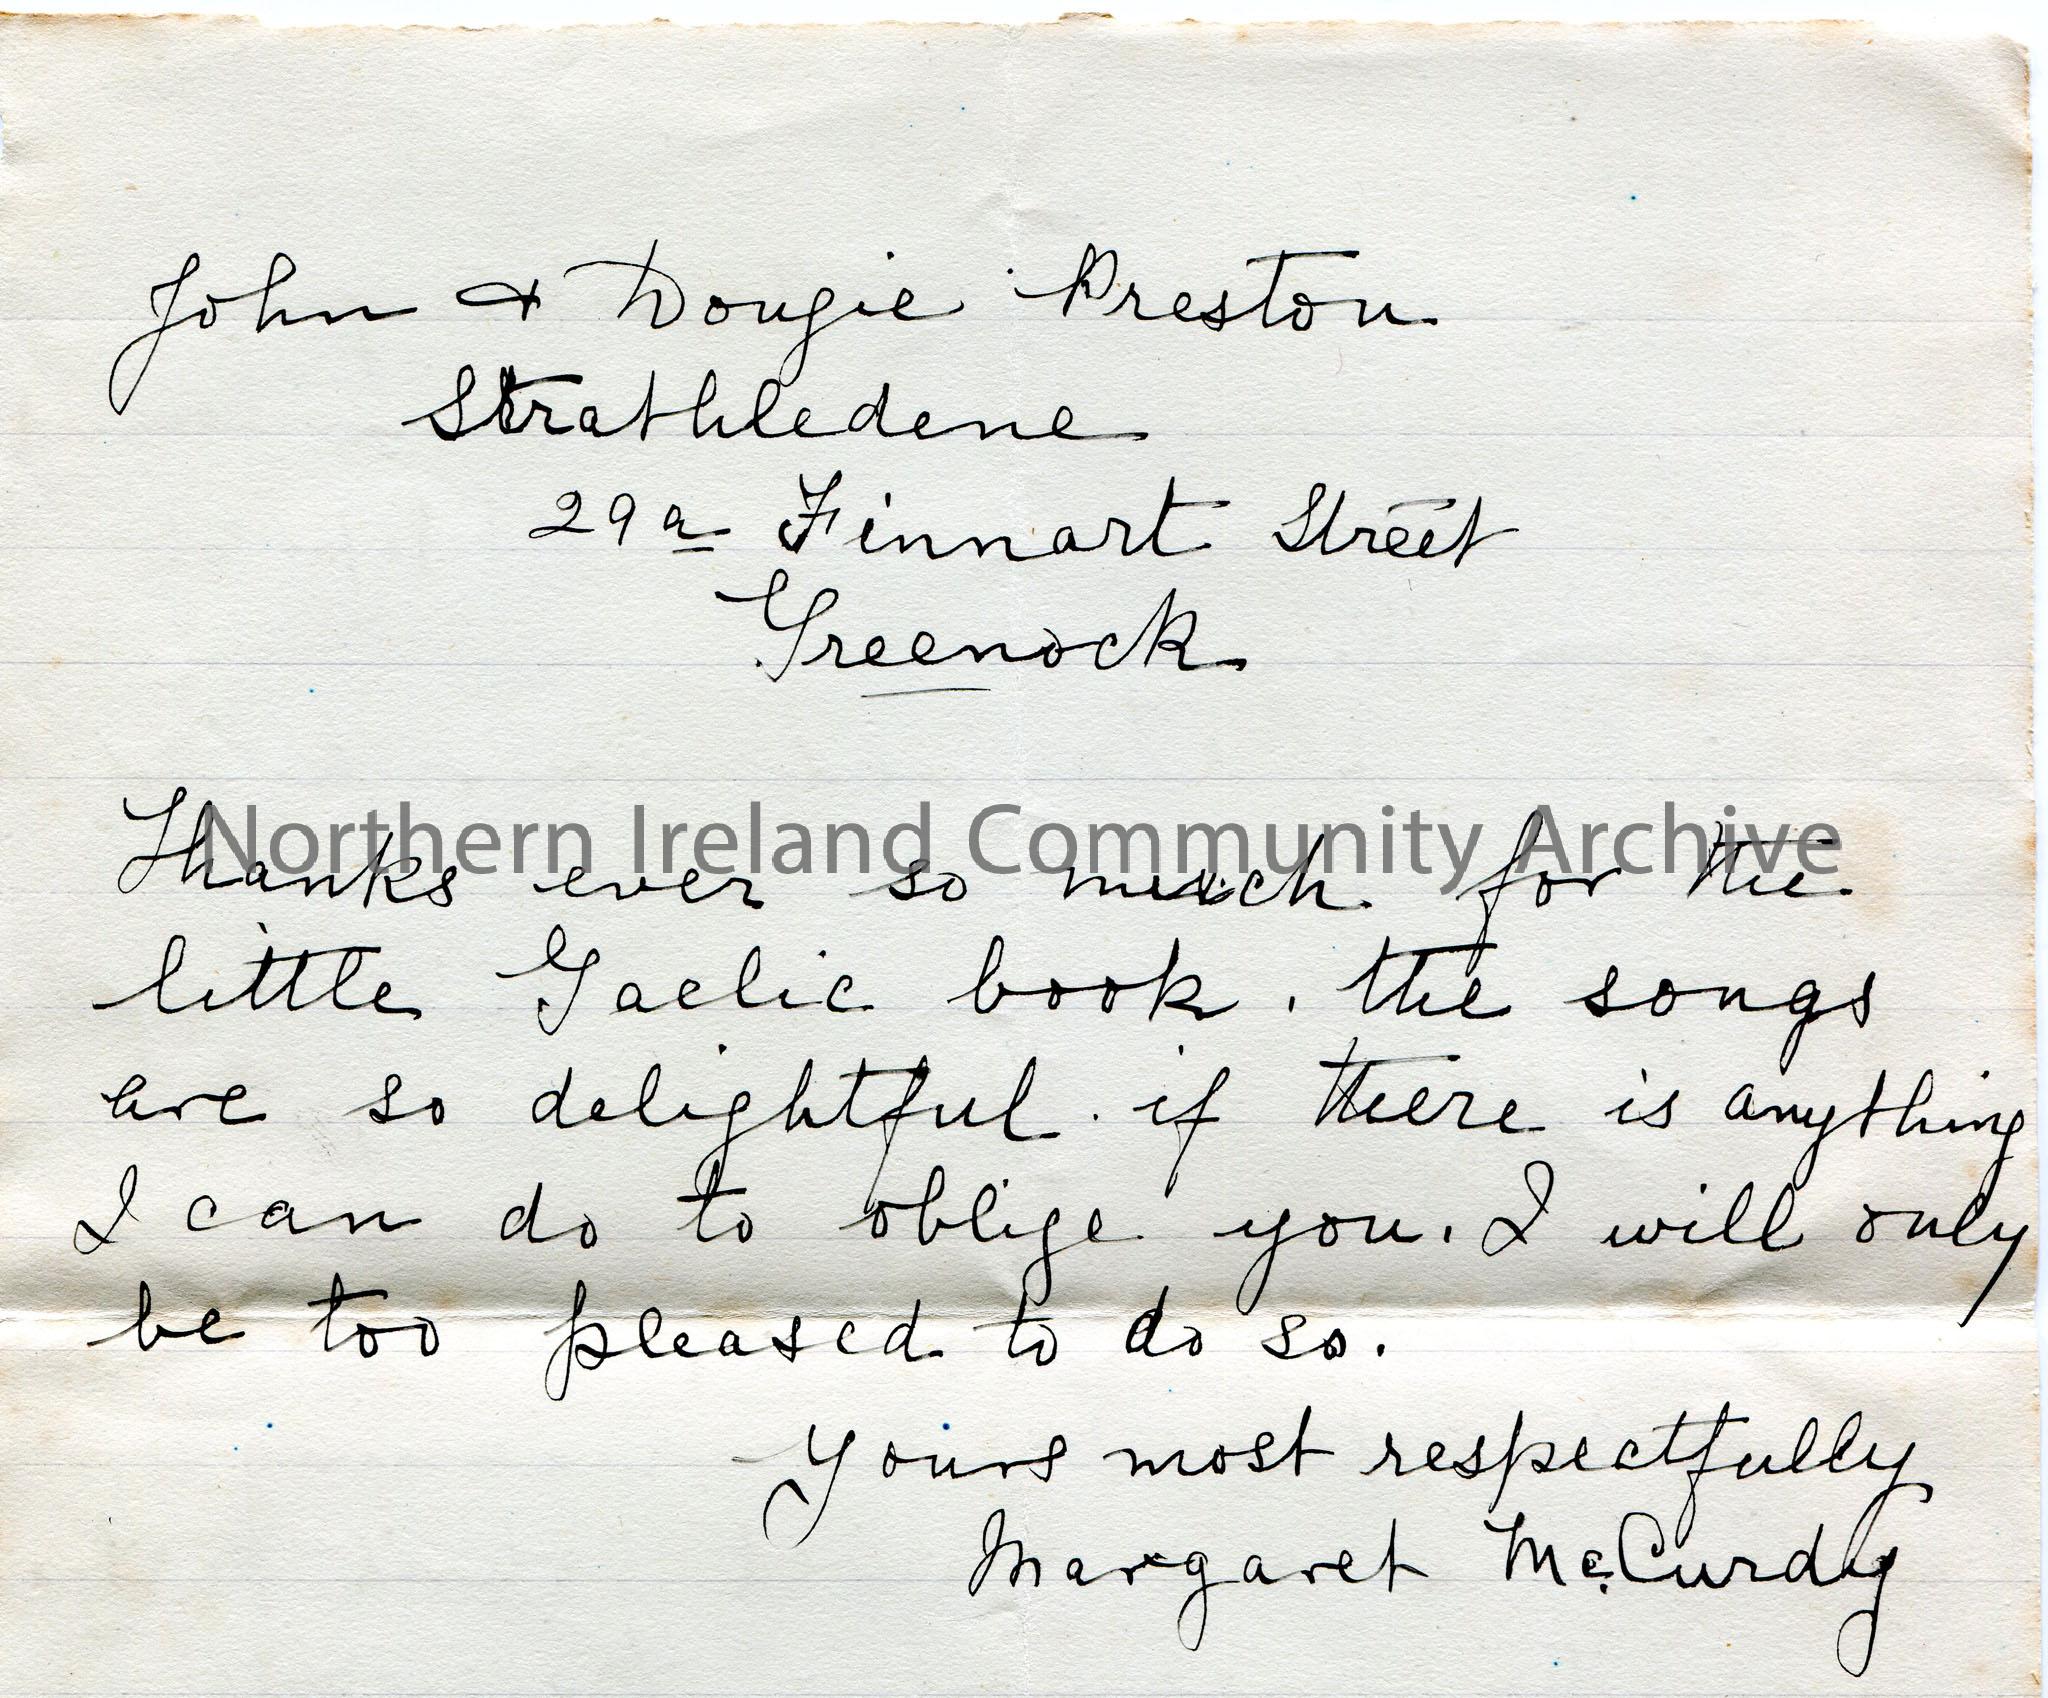 John & Dougie Preston
Strathledene
29a Finnart Street
Greenock
Northern Ireland Community Archive
Thanks ever so much for the
little Gaelic book. the songs
are so delightful. if there is anything
I can do to oblige you. I will only
be too pleased to do so.
Yours most respectfully
Margaret McCurdy